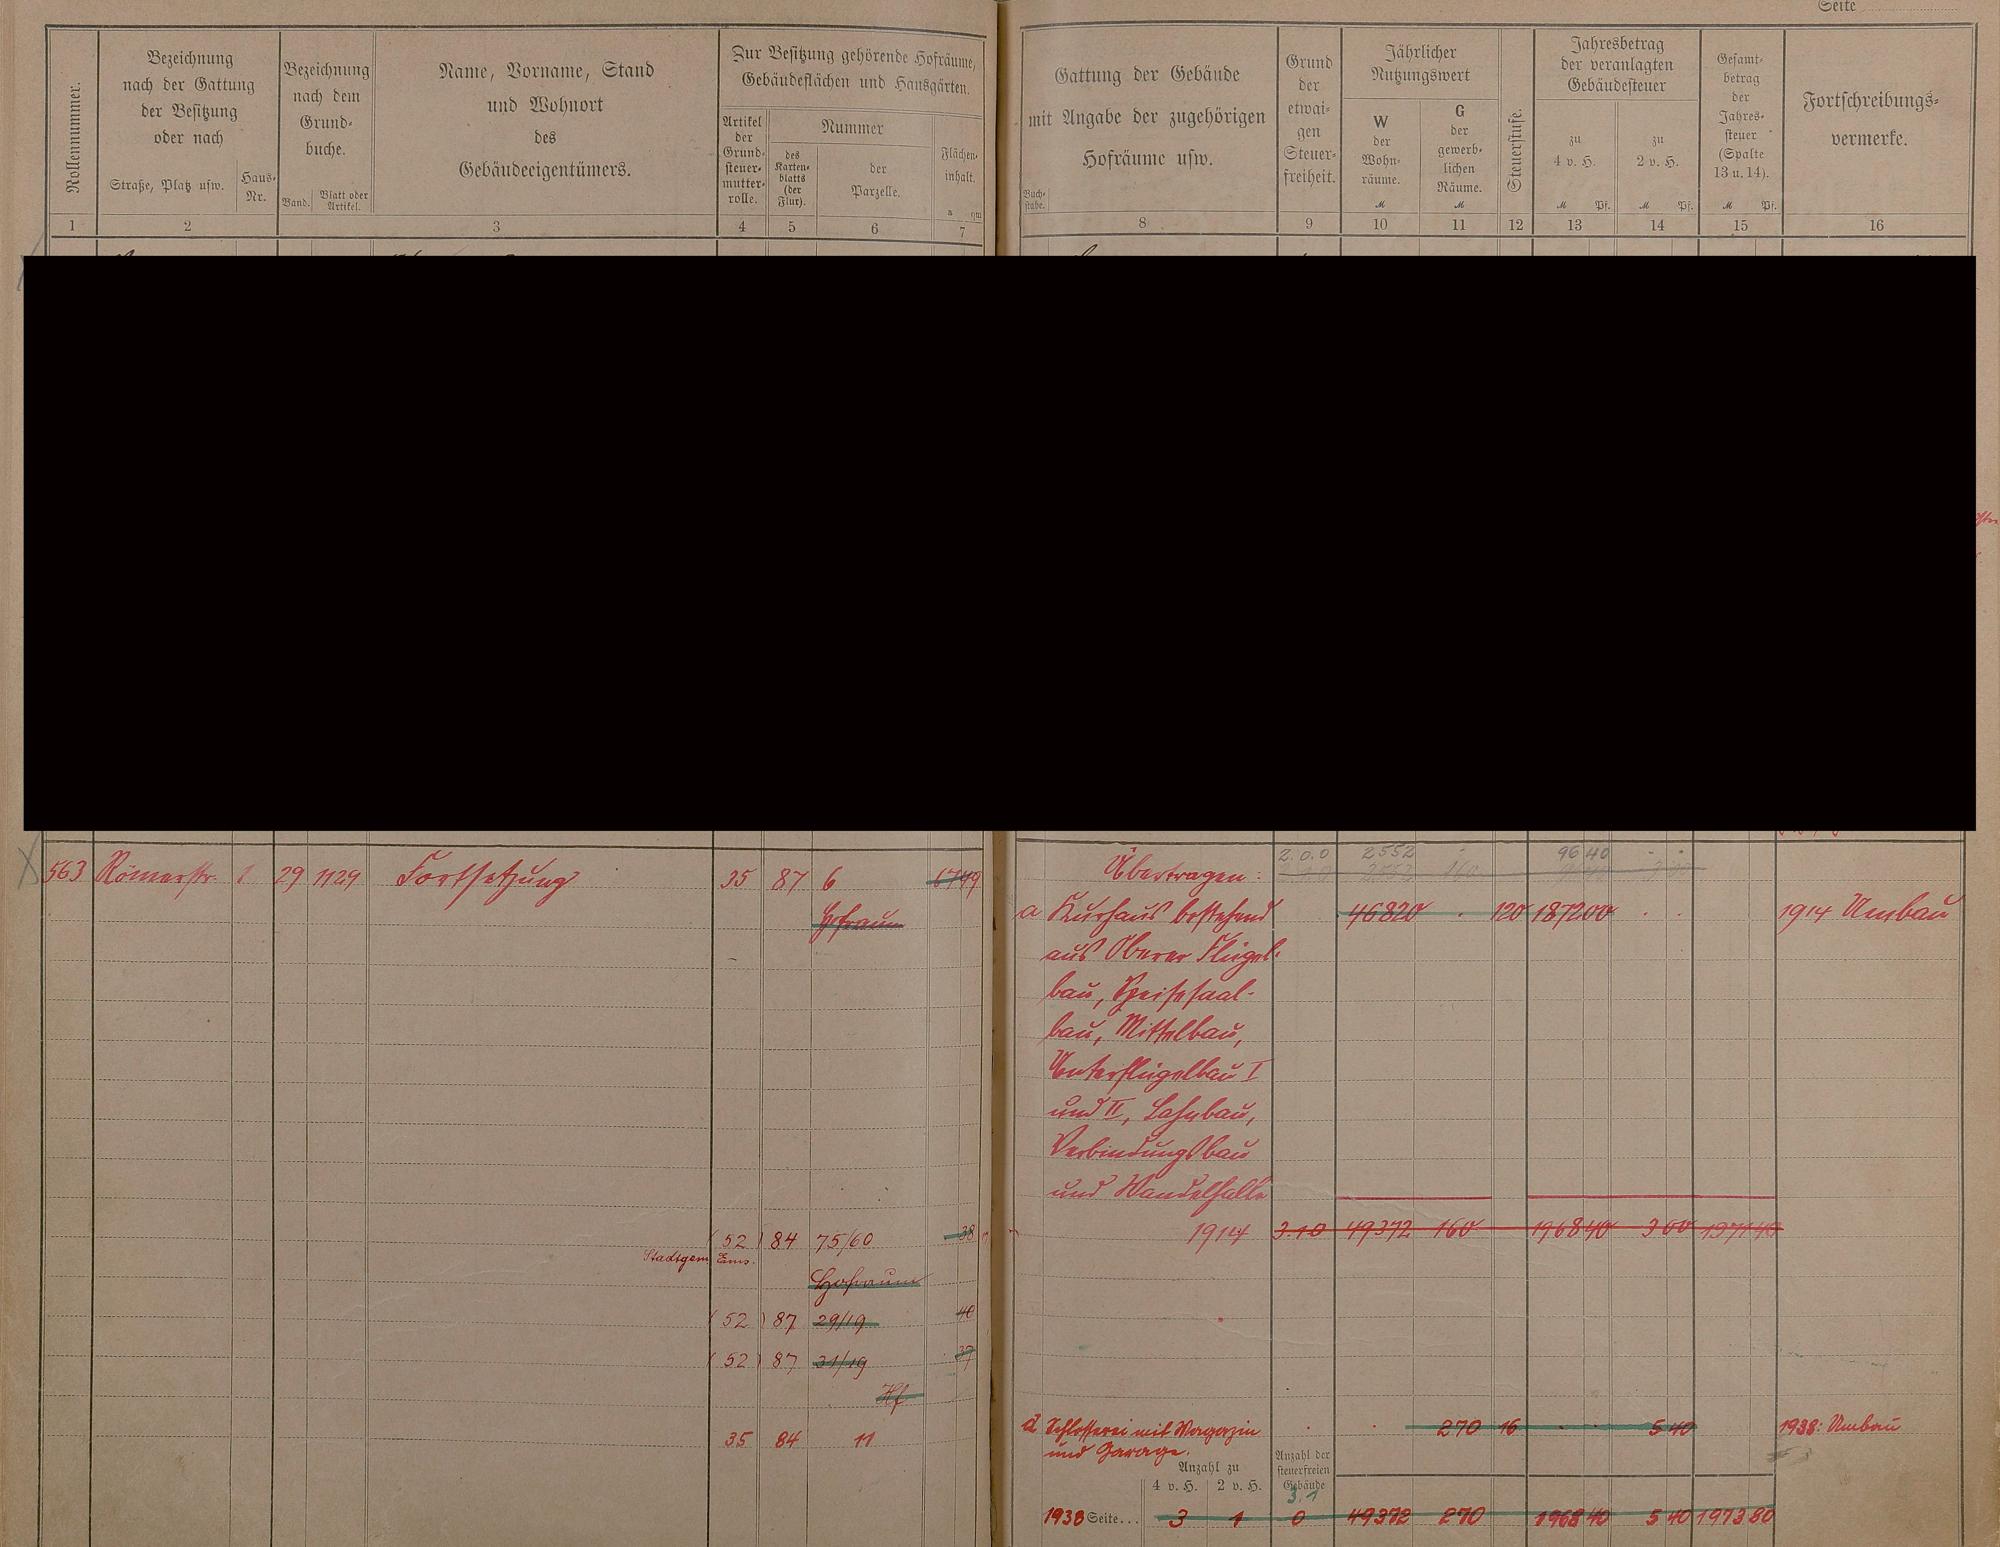 Seite
Rollennummer.
Bezeichnung
nach der Gattung
der Besitzung
oder nach
Straße, Platz usw.
Haus-
Nr.
Bezeichnung
nach dem
Grund-
buche.
Band.
Blatt oder
Artikel.
Name, Vorname, Stand
und Wohnort
des
Gebäudeeigentümers.
Zur Besitzung gehörende Hofräume,
Gebäudeflächen und Hausgärten.
Artikel
der
Grund-
steuer-
mutter-
rolle.
Nummer
des
Karten-
blatts
(der
Flur).
der
Parzelle.
Flächen-
inhalt.
a qm
Gattung der Gebäude
mit Angabe der zugehörigen
Hofräume usw.
Buch-
stabe.
Grund
der
etwai-
gen
Steuer-
freiheit.
Jährlicher
Nutzungswert
W
der
Wohn-
räume.
M
G
der
gewerb-
lichen
Räume.
M
Steuerstufe.
Jahresbetrag
der veranlagten
Gebäudesteuer
zu
4 v. H.
M Pf.
zu
2 v. H.
M Pf.
Gesamt-
betrag
der
Jahres-
steuer
(Spalte
13 u. 14).
M Pf.
Fortschreibungs-
vermerke.
1 2 3 4 5 6 7 8 9 10 11 12 13 14 15 16
563 Römerstr. 1 29 1129 Fortsetzung 35 87 6 6749
Hofraum
2.0.0 2552 96 40
Übertragen:
a Kurhaus bestehend 46820 120 1872 00 1914 Umbau
aus Oberer Flügel-
bau, Speisesaal-
bau, Mittelbau,
Unterflügelbau I
und II, Lahnbau,
Verbindungsbau
und Wandelhalle
1914 3.1.0 49372 160 1968 40 3 00 1971 40
(52) 84 75/60 38
Stadtgem. Ems.
Hofraum
(52) 87 29/19 40
(52) 87 31/19 37
Hf
35 84 11
d Schlosserei mit Magazin 270 16 5 40 1938: Umbau
und Garage.
Anzahl zu
4 v. H. 2 v. H.
Anzahl der
steuerfreien
Gebäude
3.1
1938 Seite... 3 1 0 49372 270 1968 40 5 40 1973 80